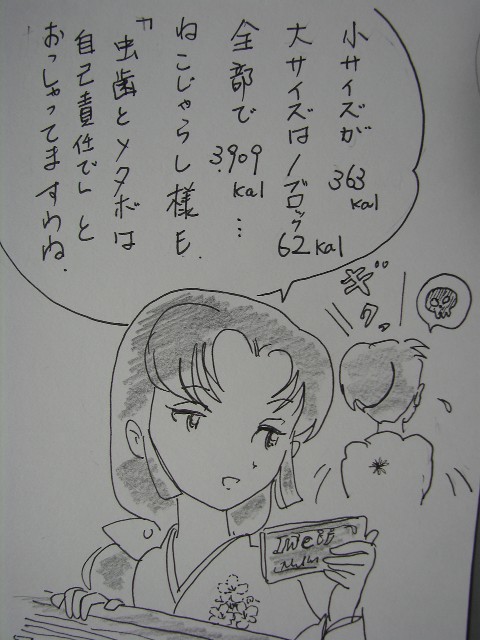 小サイズが
363
kal
大サイズは1ブロック
62kal
全部で
3,909
kal
…
ねこじゃらし様も、
「虫歯とメタボは
自己責任で」と
おっしゃってますわね.
ギクッ